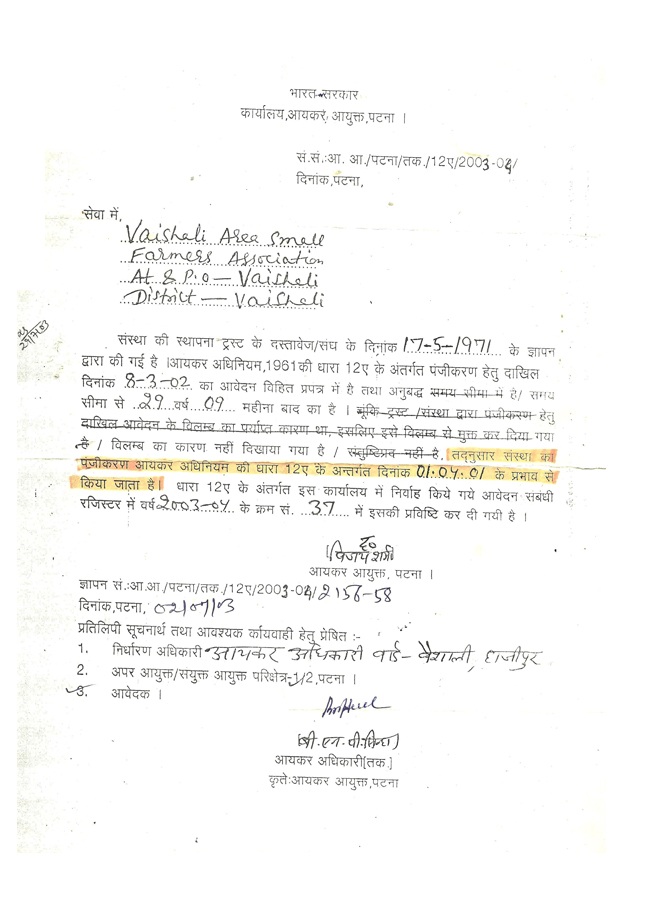 भारत सरकार
कार्यालय,आयकर, आयुक्त,पटना ।
सं.सं.:आ. आ./पटना/तक./12ए/2003-04/
दिनांक,पटना,
सेवा में,
Vaishali Area Small
Farmers Association
At & P.O – Vaishali
District – Vaishali
29/7/03
संस्था की स्थापना ट्रस्ट के दस्तावेज/संघ के दिनांक 17-5-1971 के ज्ञापन
द्वारा की गई है ।आयकर अधिनियम,1961की धारा 12ए के अंतर्गत पंजीकरण हेतु दाखिल
दिनांक 8-3-02 का आवेदन विहित प्रपत्र में है तथा अनुबद्ध समय सीमा में है/ समय
सीमा से 29 वर्ष 09 महीना बाद का है । चूंकि ट्रस्ट /संस्था द्वारा पंजीकरण हेतु
दाखिल आवेदन के विलम्ब का पर्याप्त कारण था, इसलिए इसे विलम्ब से मुक्त कर दिया गया
है / विलम्ब का कारण नहीं दिखाया गया है / संतुष्टिप्रद नहीं है. तद्नुसार संस्था का
पंजीकरण आयकर अधिनियम की धारा 12ए के अन्तर्गत दिनांक 01.04.01 के प्रभाव से
किया जाता है। धारा 12ए के अंतर्गत इस कार्यालय में निर्वाह किये गये आवेदन संबंधी
रजिस्टर में वर्ष 2003-04 के क्रम सं. 37 में इसकी प्रविष्टि कर दी गयी है ।
ह०
(विजय शर्मा)
आयकर आयुक्त, पटना ।
ज्ञापन सं.:आ.आ./पटना/तक./12ए/2003-04/2156-58
दिनांक,पटना, 02/07/03
प्रतिलिपी सूचनार्थ तथा आवश्यक कार्यवाही हेतु प्रेषित :-
1. निर्धारण अधिकारी आयकर अधिकारी वार्ड- वैशाली, हाजीपुर
2. अपर आयुक्त/सयुक्त आयुक्त परिक्षेत्र-1/2,पटना ।
3. आवेदक ।
(बी.एन.पी.सिन्हा)
आयकर अधिकारी[तक.]
कृते:आयकर आयुक्त,पटना